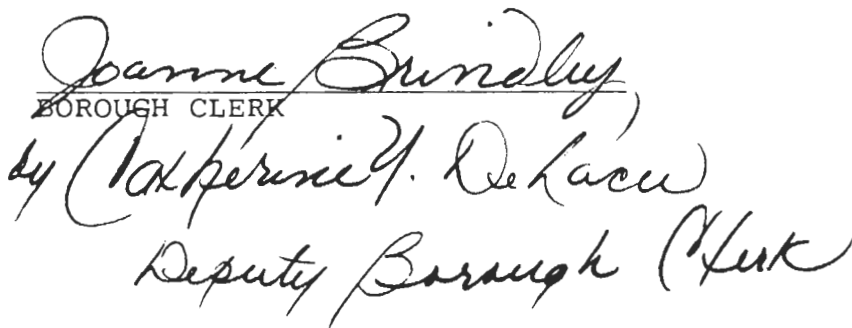 Joanne Brindley,
BOROUGH CLERK
by Catherine Y.
Deputy Borough Clerk